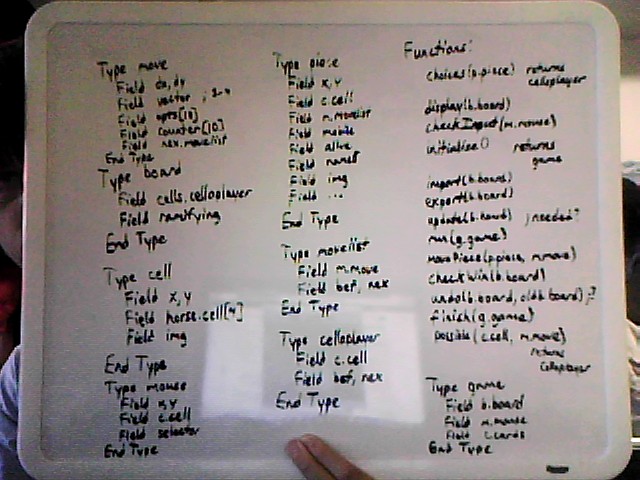 Type move
Field dx, dy
Field vector ; 1-4
Field opts[10]
Field counter[10]
Field nex.movelist
End Type
Type board
Field cells.cellsplayer
Field ramifying
End Type
Type cell
Field x, y
Field horse.cell[4]
Field img
End Type
Type mouse
Field x, y
Field c.cell
Field selector
End Type
Type piece
Field x, y
Field c.cell
Field m.movelist
Field mobile
Field alive
Field name$
Field img
Field ...
End Type
Type movelist
Field m.move
Field bef, nex
End Type
Type cellsplayer
Field c.cell
Field bef, nex
End Type
Functions:
choices(p.piece) returns
cellsplayer
display(b.board)
checkInput(m.mouse)
initialise() returns
game
import(b.board)
export(b.board)
update(b.board) ;needed?
run(g.game)
movePiece(p.piece, m.move)
checkWin(b.board)
undo(b.board, oldb.board) ;?
finish(g.game)
possible(c.cell, m.move)
returns
cellsplayer
Type game
Field b.board
Field m.mouse
Field c.cards
End Type